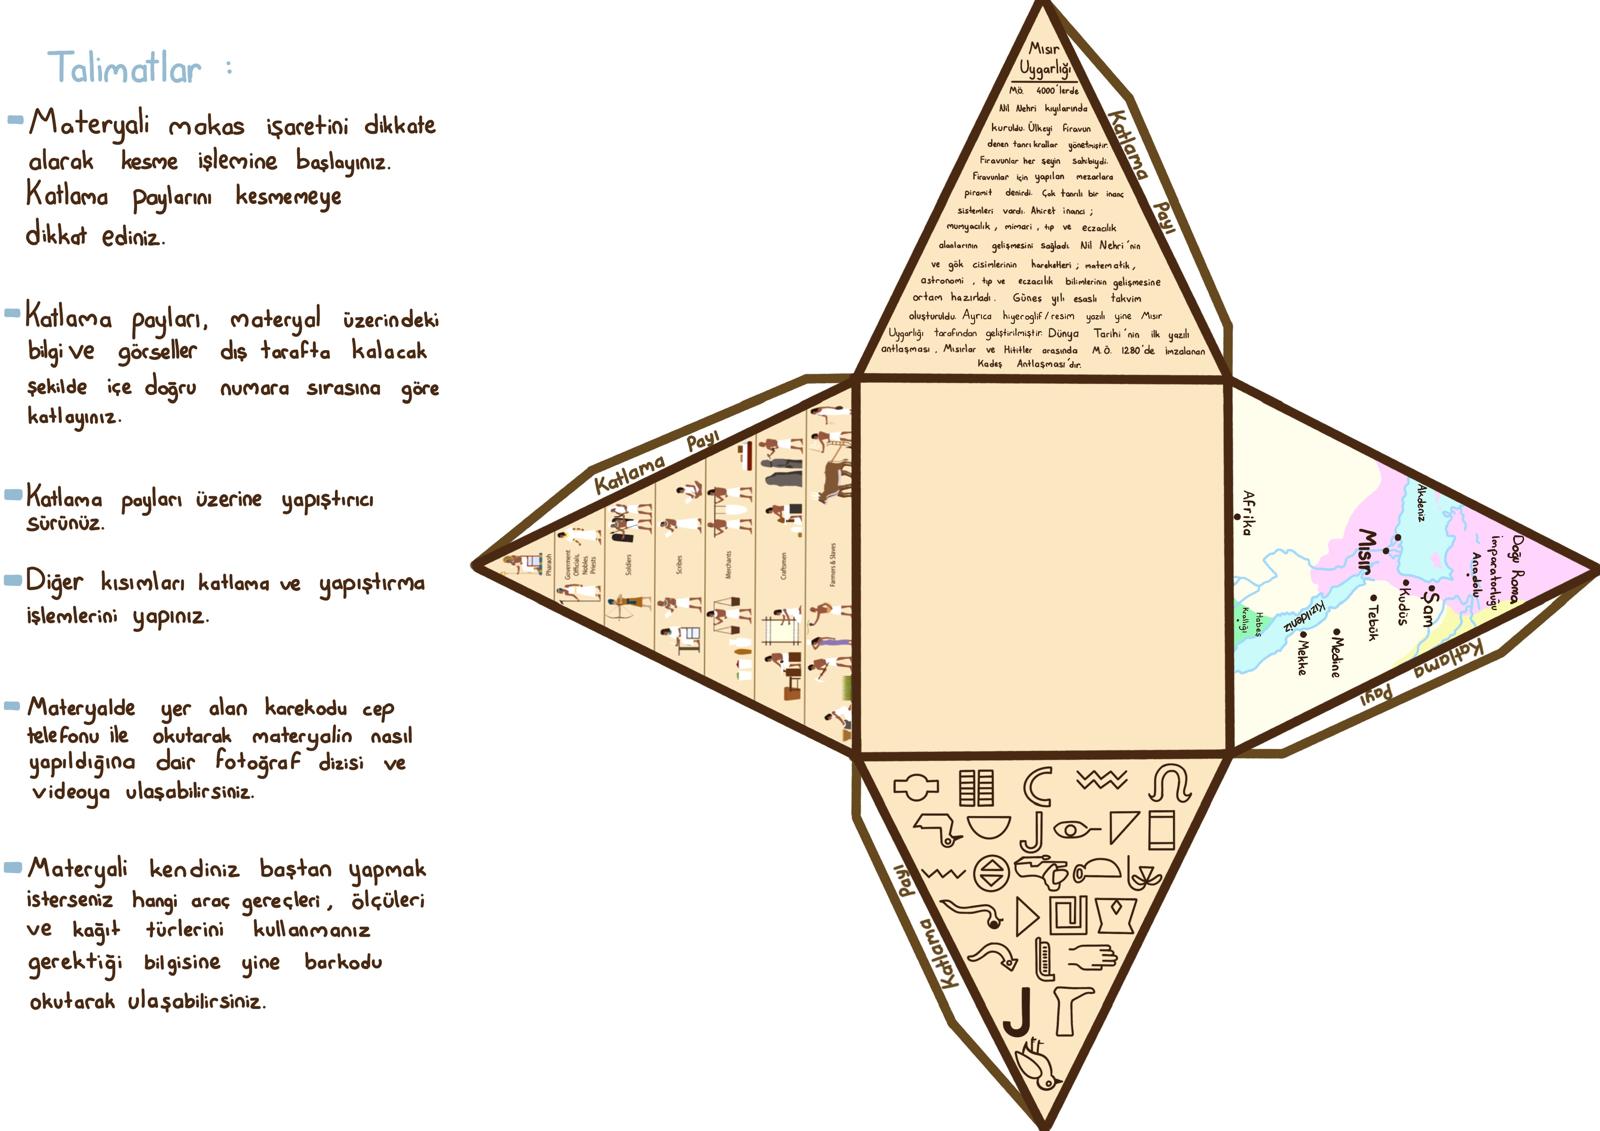 Talimatlar :
Materyali makas işaretini dikkate
alarak kesme işlemine başlayınız.
Katlama paylarını kesmemeye
dikkat ediniz.
Katlama payları, materyal üzerindeki
bilgi ve görseller dış tarafta kalacak
şekilde içe doğru numara sırasına göre
katlayınız.
Katlama payları üzerine yapıştırıcı
sürünüz.
Diğer kısımları katlama ve yapıştırma
işlemlerini yapınız.
Materyalde yer alan karekodu cep
telefonu ile okutarak materyalin nasıl
yapıldığına dair fotoğraf dizisi ve
videoya ulaşabilirsiniz.
Materyali kendiniz baştan yapmak
isterseniz hangi araç gereçleri, ölçüleri
ve kağıt türlerini kullanmanız
gerektiği bilgisine yine barkodu
okutarak ulaşabilirsiniz.
Mısır
Uygarlığı
Mö. 4000'lerde
Nil Nehri kıyılarında
kuruldu. Ülkeyi Firavun
denen tanrı krallar yönetmiştir.
Firavunlar her şeyin sahibiydi.
Firavunlar için yapılan mezarlara
piramit denirdi. Çok tanrılı bir inanç
sistemleri vardı. Ahiret inancı ;
mumyacılık , mimari , tıp ve eczacılık
alanlarının gelişmesini sağladı. Nil Nehri'nin
ve gök cisimlerinin hareketleri ; matematik,
astronomi , tıp ve eczacılık bilimlerinin gelişmesine
ortam hazırladı. Güneş yılı esaslı takvim
oluşturuldu. Ayrıca hiyeroglif/resim yazılı yine Mısır
Uygarlığı tarafından geliştirilmiştir. Dünya Tarihi'nin ilk yazılı
antlaşması , Mısırlar ve Hititler arasında M.Ö. 1280'de imzalanan
Kadeş Antlaşması'dır.
Katlama Payı
Katlama Payı
Pharaoh
Government
Officials,
Nobles,
Priests
Soldiers
Scribes
Merchants
Craftsmen
Farmers & Slaves
Doğu Roma
İmparatorluğu
Anadolu
Akdeniz
Şam
Kudüs
Mısır
Tebük
Medine
Kızıldeniz
Mekke
Habeş
Krallığı
Afrika
Katlama Payı
Katlama Payı